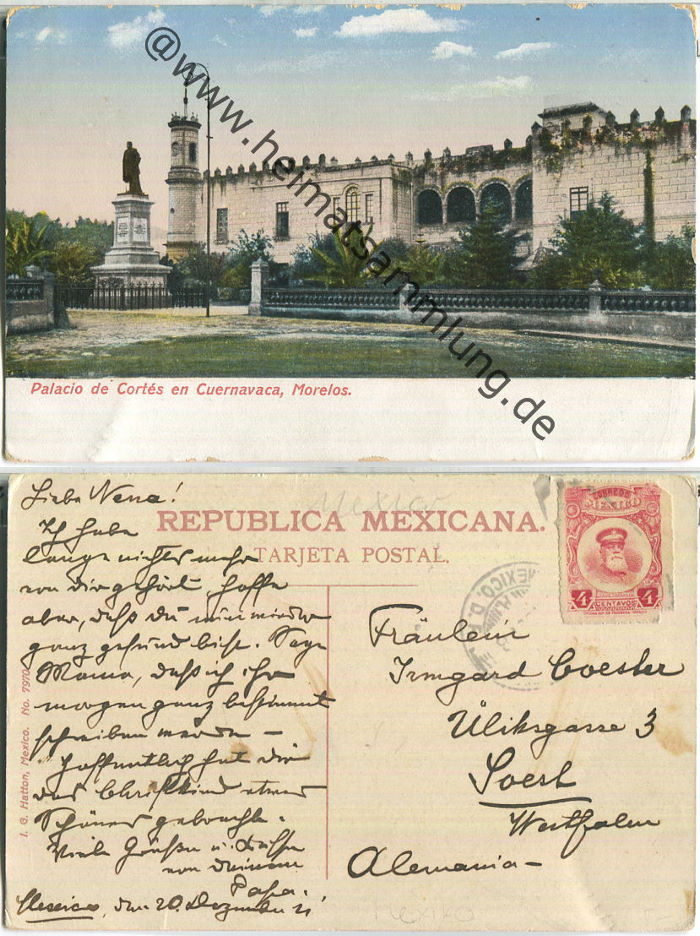 @www.heimatsammlung.de
Palacio de Cortés en Cuernavaca, Morelos.
Mexico
REPUBLICA MEXICANA.
TARJETA POSTAL.
CORREOS
MEXICO
4 CENTAVOS 4
MEXICO. D.
I. G. Hatton, Mexico. No. 7970
Liebe Nena!
Ich habe
lange nichts mehr
von dir gehört, hoffe
aber, daß du nun wieder
ganz gesund bist. Sage
Mama, daß ich ihr
morgen ganz bestimmt
schreiben werde –
Hoffentlich hat dir
das Christkind etwas
Schönes gebracht.
Viele Grüße u. Küsse
von deinem
Papa.
Mexico, den 20. Dezember 21
Fräulein
Irmgard Coester
Ülriksgasse 3
Soest
Westfalen
Alemania –
MEXIKO